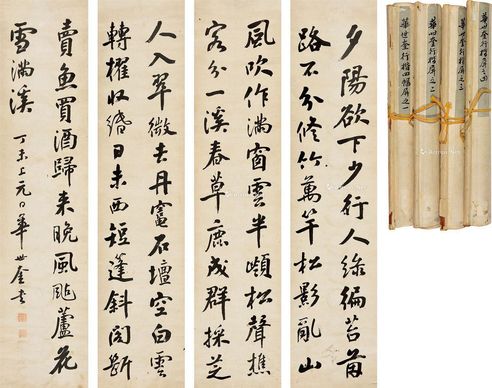 夕陽欲下少行人綠徧苔茵
路不分修竹萬竿松影亂山
風吹作滿窗雲半嶺松聲樵
客分一溪春草鹿成群採芝
人入翠微去丹竈石壇空白雲
轉櫂收緡日未西短篷斜閣斷
賣魚買酒歸來晚風颭蘆花
雪滿溪 丁未上元日華世奎書
華世奎行楷屏之四
華世奎行楷屏之三
華世奎行楷屏之二
華世奎行楷四幅屏之一